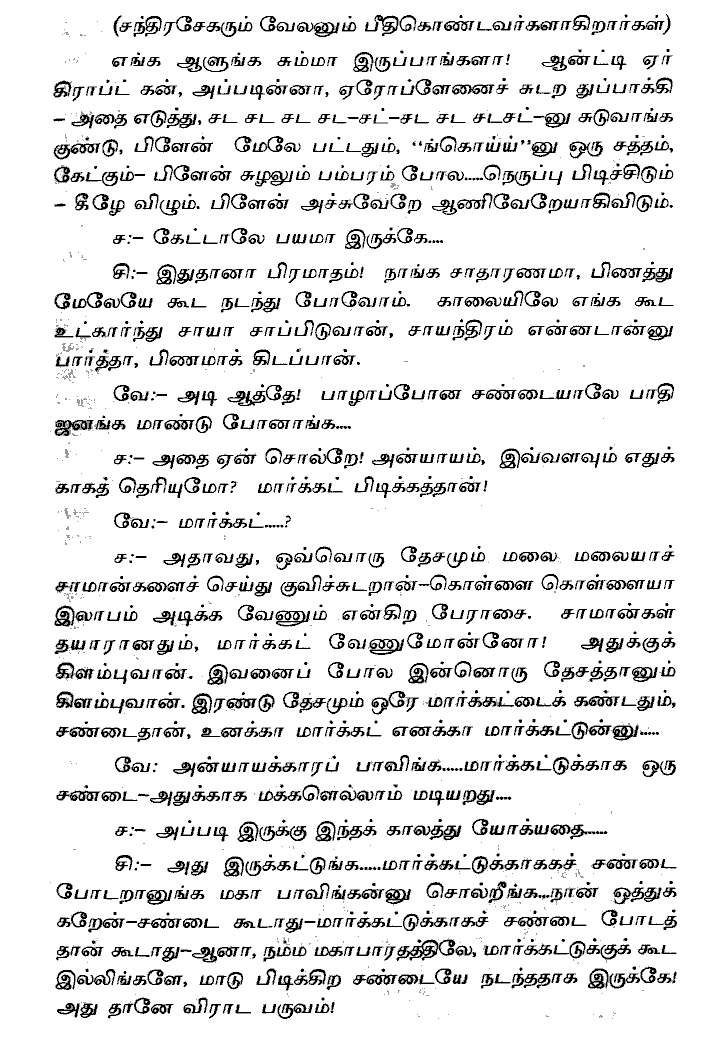 (சந்திரசேகரும் வேலனும் பீதிகொண்டவர்களாகிறார்கள்)
எங்க ஆளுங்க சும்மா இருப்பாங்களா! ஆன்ட்டி ஏர்
கிராப்ட் கன், அப்படின்னா, ஏரோப்ளேனைச் சுடற துப்பாக்கி
– அதை எடுத்து, சட சட சட சட–சட்–சட சட சடசட்–னு சுடுவாங்க
குண்டு, பிளேன் மேலே பட்டதும், “ங்கொய்ய்”னு ஒரு சத்தம்,
கேட்கும்– பிளேன் சுழலும் பம்பரம் போல.....நெருப்பு பிடிச்சிடும்
– கீழே விழும். பிளேன் அச்சுவேறே ஆணிவேறேயாகிவிடும்.
ச:– கேட்டாலே பயமா இருக்கே....
சி:– இதுதானா பிரமாதம்! நாங்க சாதாரணமா, பிணத்து
மேலேயே கூட நடந்து போவோம். காலையிலே எங்க கூட
உட்கார்ந்து சாயா சாப்பிடுவான், சாயந்திரம் என்னடான்னு
பார்த்தா, பிணமாக் கிடப்பான்.
வே:– அடி ஆத்தே! பாழாப்போன சண்டையாலே பாதி
ஜனங்க மாண்டு போனாங்க....
ச:– அதை ஏன் சொல்றே! அன்யாயம், இவ்வளவும் எதுக்
காகத் தெரியுமோ? மார்க்கட் பிடிக்கத்தான்!
வே:– மார்க்கட்.....?
ச:– அதாவது, ஒவ்வொரு தேசமும் மலை மலையாச்
சாமான்களைச் செய்து குவிச்சுடறான்–கொள்ளை கொள்ளையா
இலாபம் அடிக்க வேணும் என்கிற பேராசை. சாமான்கள்
தயாரானதும், மார்க்கட் வேணுமோன்னோ! அதுக்குக்
கிளம்புவான். இவனைப் போல இன்னொரு தேசத்தானும்
கிளம்புவான். இரண்டு தேசமும் ஒரே மார்க்கட்டைக் கண்டதும்,
சண்டைதான், உனக்கா மார்க்கட் எனக்கா மார்க்கட்டுன்னு.....
வே: அன்யாயக்காரப் பாவிங்க.....மார்க்கட்டுக்காக ஒரு
சண்டை–அதுக்காக மக்களெல்லாம் மடியறது....
ச:– அப்படி இருக்கு இந்தக் காலத்து யோக்யதை......
சி:– அது இருக்கட்டுங்க.....மார்க்கட்டுக்காககச் சண்டை
போடறானுங்க மகா பாவிங்கன்னு சொல்றீங்க...நான் ஒத்துக்
கறேன்–சண்டை கூடாது–மார்க்கட்டுக்காகச் சண்டை போடத்
தான் கூடாது–ஆனா, நம்ம மகாபாரதத்திலே, மார்க்கட்டுக்குக் கூட
இல்லிங்களே, மாடு பிடிக்கிற சண்டையே நடந்ததாக இருக்கே!
அது தானே விராட பருவம்!